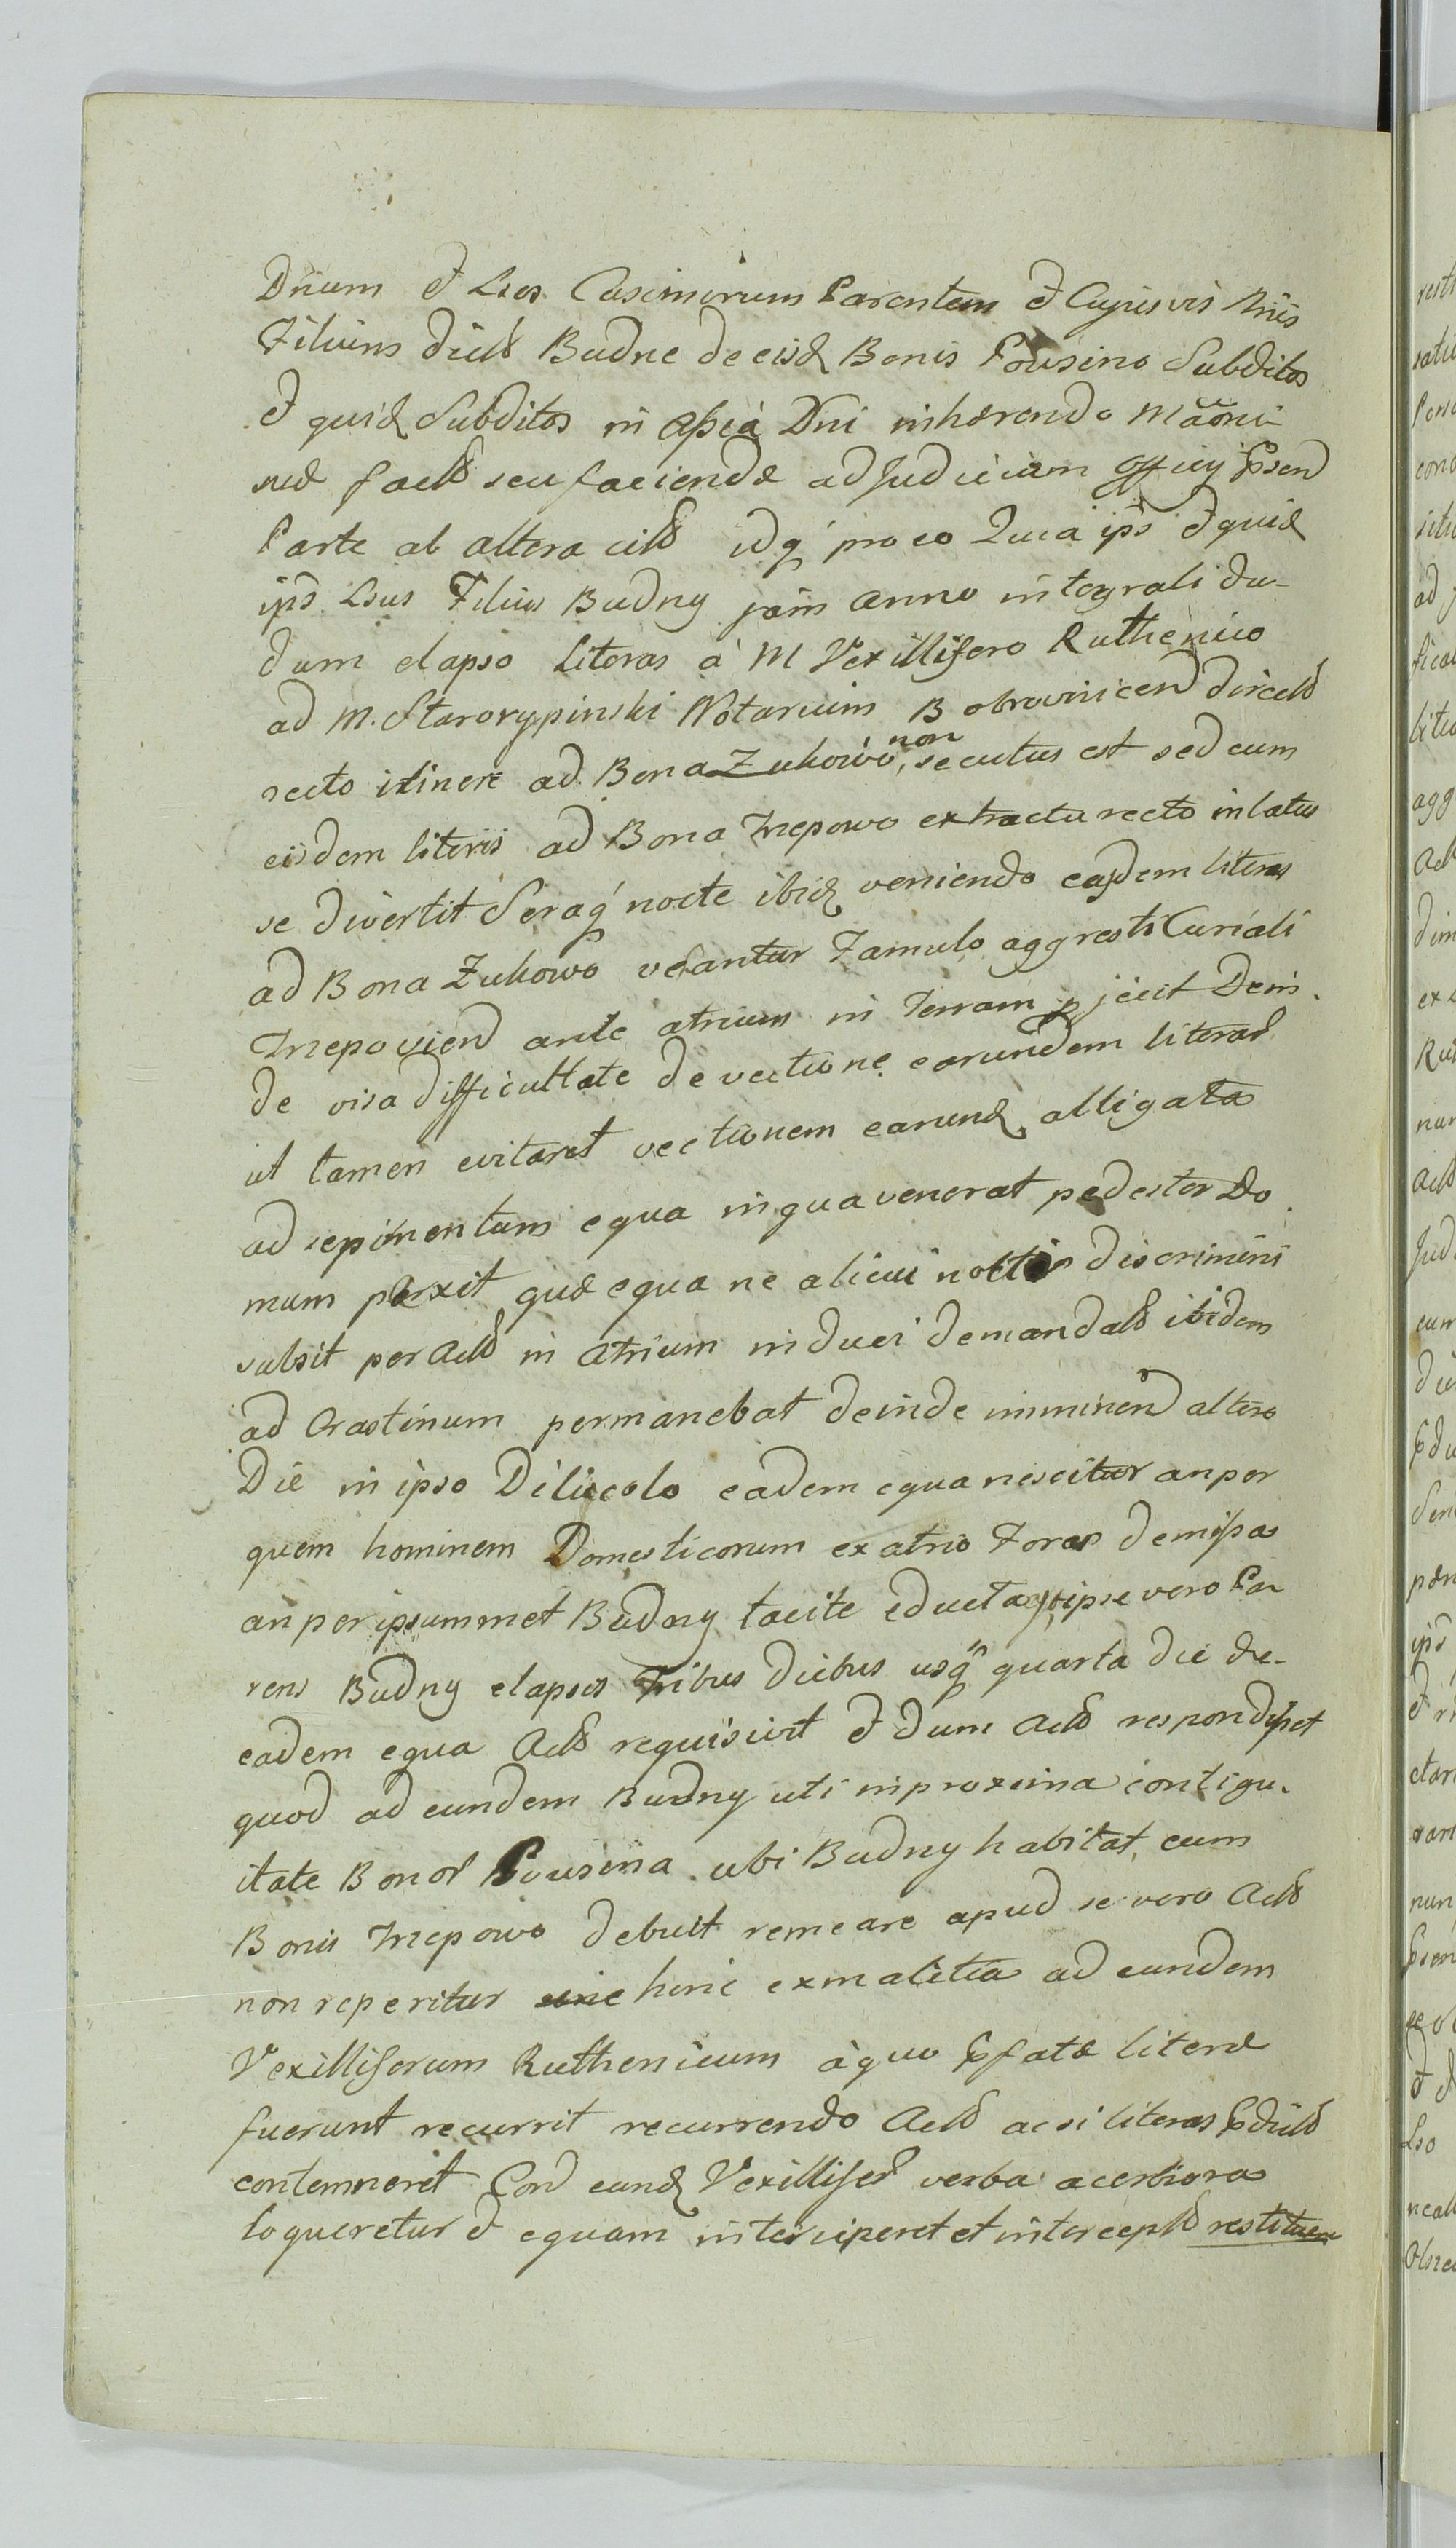 Dnum et Lsos Casimirum Parentem et Cujusvis Nnis
Filium dict Budne de eisd Bonis Pousino Subditos
et quid Subditos in assia Dni inhærendo Maoni
suæ fact seu faciendæ ad Judicium Officij Psen
Parte ab altera cit idq pro eo Quia ips et quid
ips Lsus Filius Budny jam anno integrali du-
dum elapso Literas à M Vexillifero Ruthenico
ad M. Starorypinski Notarium Bobrovnicen direct
recto itinere ad Bona Zukowo, non secutus est sed cum
eisdem literis ad Bona Trzepowo extractu recto in latus
se divertit Seraq nocte ibid veniendo easdem literas
ad Bona Zukowo vehantur Famulo aggresti Curiali
Trzepovien ante atrium in Terram pjecit Dein.
de visa difficultate devectione earundem literar
ut tamen evitaret vectionem earund alligata
ad sepimentum equa in qua venerat pedester Do
mum perxit quæ equa ne alicui noctis discrimini
subsit per Act in atrium induci demandat ibidem
ad Crastinum permanebat deinde imminen altero
Die in ipso Diliculo eadem equa nescitur an per
quem hominem Domesticorum ex atrio Foras demissa
an per ipsummet Budny tacite educta, ipse vero Pa
rens Budny elapsis Tribus diebus usq quarta die de
eadem equa Act requisivit et dum Act respondisset
quod ad eundem Budny uti in proxima contigu-
itate Bonor Pousina ubi Budny habitat, cum
Bonis Trzepowo debuit remeare apud se vero Act
non reperitur hinc ex malitia ad eundem
Vexilliferum Ruthenicum à quo Pfatæ literæ
fuerunt recurrit recurrendo Act acsi literas Pdict
contemneret Con eund Vexillifer verba acerbiora
loqueretur et equam interciperet et intercept restituere